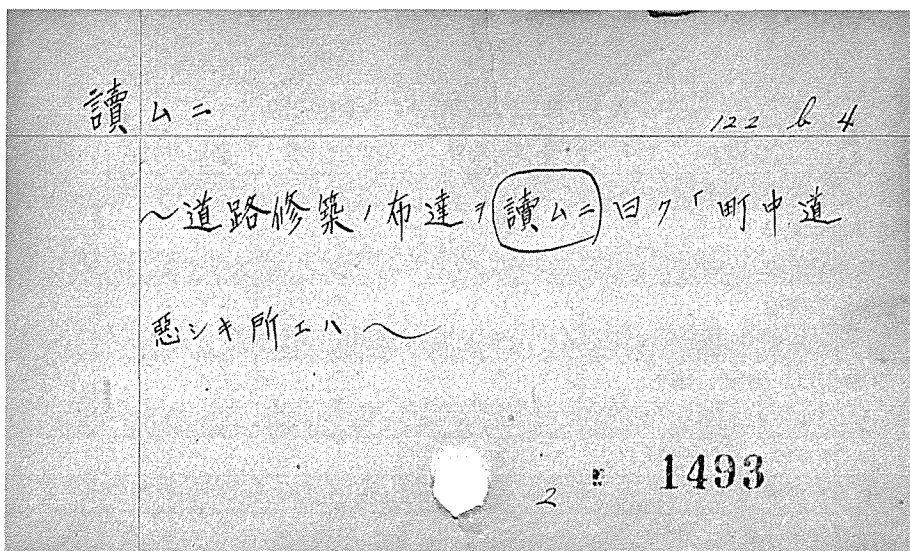 讀ムニ
122 b 4
〜道路修築ノ布達ヲ讀ムニ曰ク「町中道
悪シキ所エハ〜
2 1493